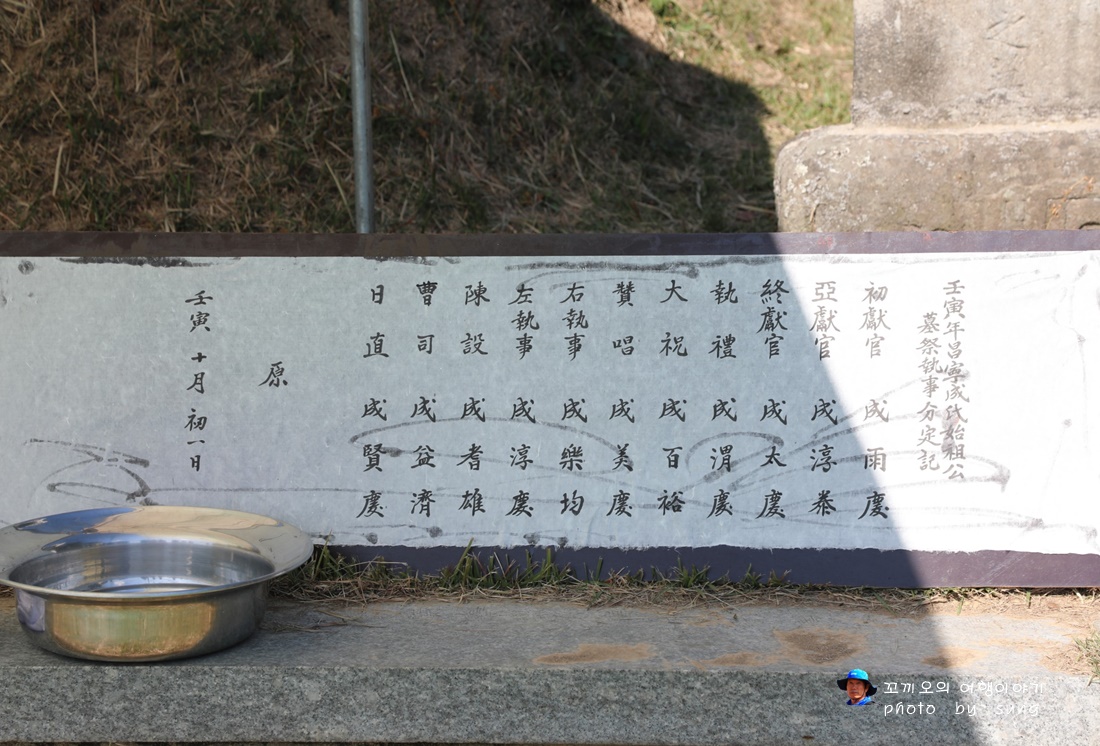 壬寅年昌寧成氏始祖公
墓祭執事分定記
初獻官 成雨慶
亞獻官 成淳泰
終獻官 成太慶
執禮 成渭慶
大祝 成百裕
贊唱 成美慶
右執事 成樂均
左執事 成淳慶
陳設 成耆雄
曹司 成益濟
日直 成賢慶
原
壬寅 十月 初一日
꼬끼오의 여행이야기
photo by sung